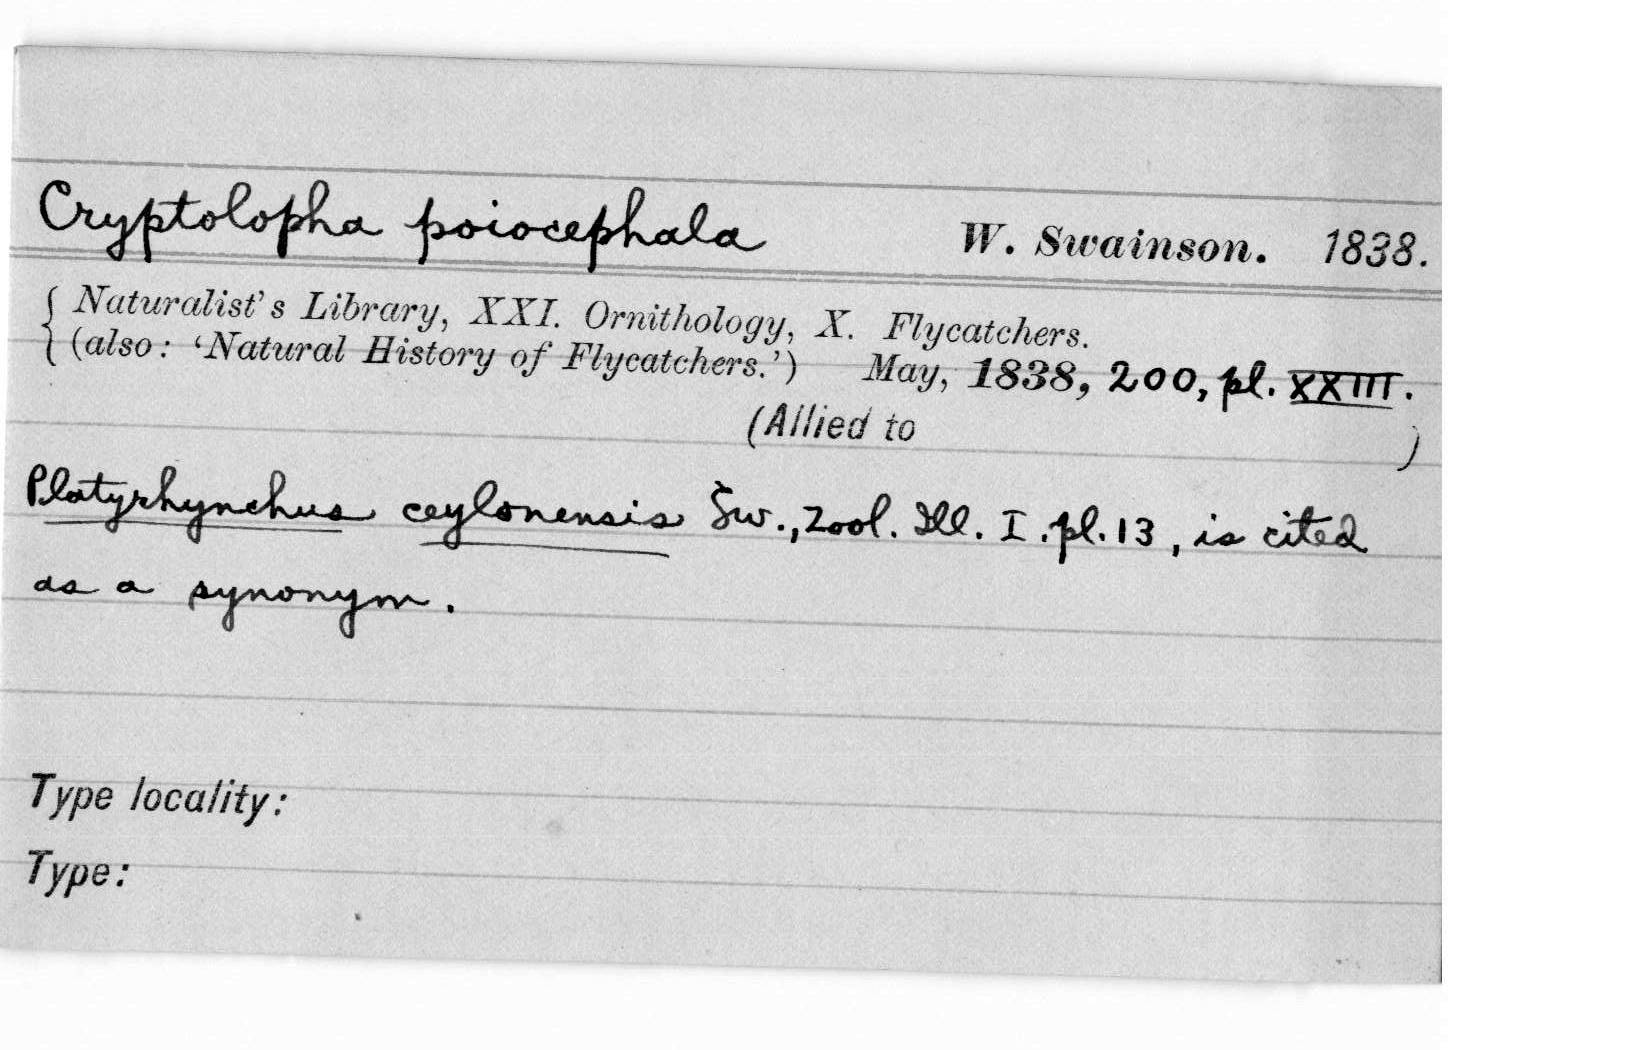 Cryptolopha poiocephala W. Swainson. 1838.
Naturalist's Library, XXI. Ornithology, X. Flycatchers.
(also: 'Natural History of Flycatchers.') May, 1838, 200, pl. XXIII.
(Allied to )
Platyrhynchus ceylonensis Sw., Zool. Ill. I. pl. 13, is cited
as a synonym.
Type locality:
Type: